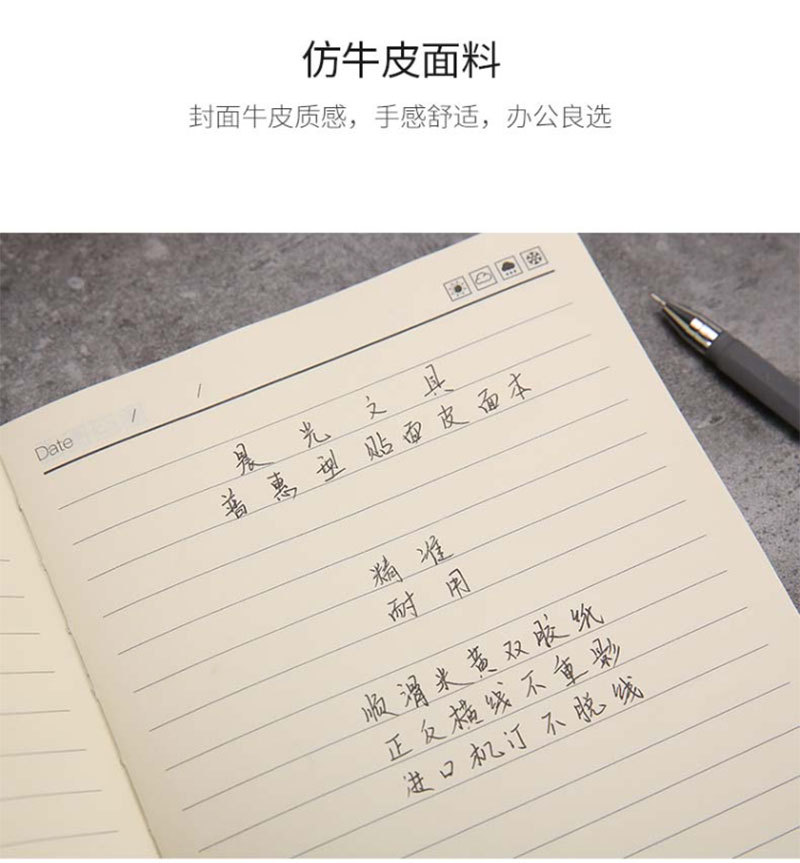 仿牛皮面料
封面牛皮质感，手感舒适，办公良选
Date / /
晨光文具
普惠型贴面皮面本
精准
耐用
顺滑米黄双胶纸
正反横线不重影
进口机订不脱线